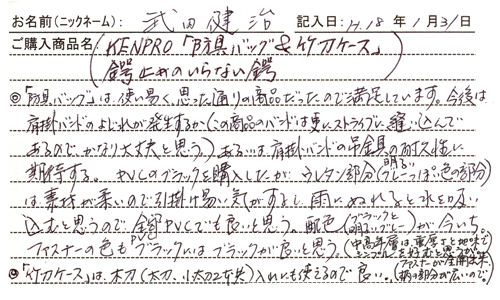 お名前(ニックネーム): 武田健治 記入日:H.18年1月31日
ご購入商品名(KENPRO「防具バッグ&竹刀ケース」
鍔止めのいらない鍔
◎「防具バッグ」は、使い易く、思った通りの商品だったので満足しています。今後は
肩掛バンドのよじれが発生するか(この商品のバンドは更にストライプに縫い込んで
あるので、かなり大丈夫と思う)あるいは肩掛バンドの吊金具の耐久性に
期待する。PVCのブラックを購入したが、ウレタン部分(明るいグレーっぽい色の部分)
は素材が柔いので引掛け易い気がするし、雨にぬれると水を吸い
込むと思うので全部PVCでも良いと思う。配色(ブラックと明るいグレー)が今いち。
ファスナーの色もPVCブラックにはブラックが良いと思う。(中高年層は重厚さと地味でシンプルを好むと思うから
◎「竹刀ケース」は、木刀(太刀、小太刀2本共)入れにも使えるので良い。(ファスナーが全開出来、柄の部分が広いので。)